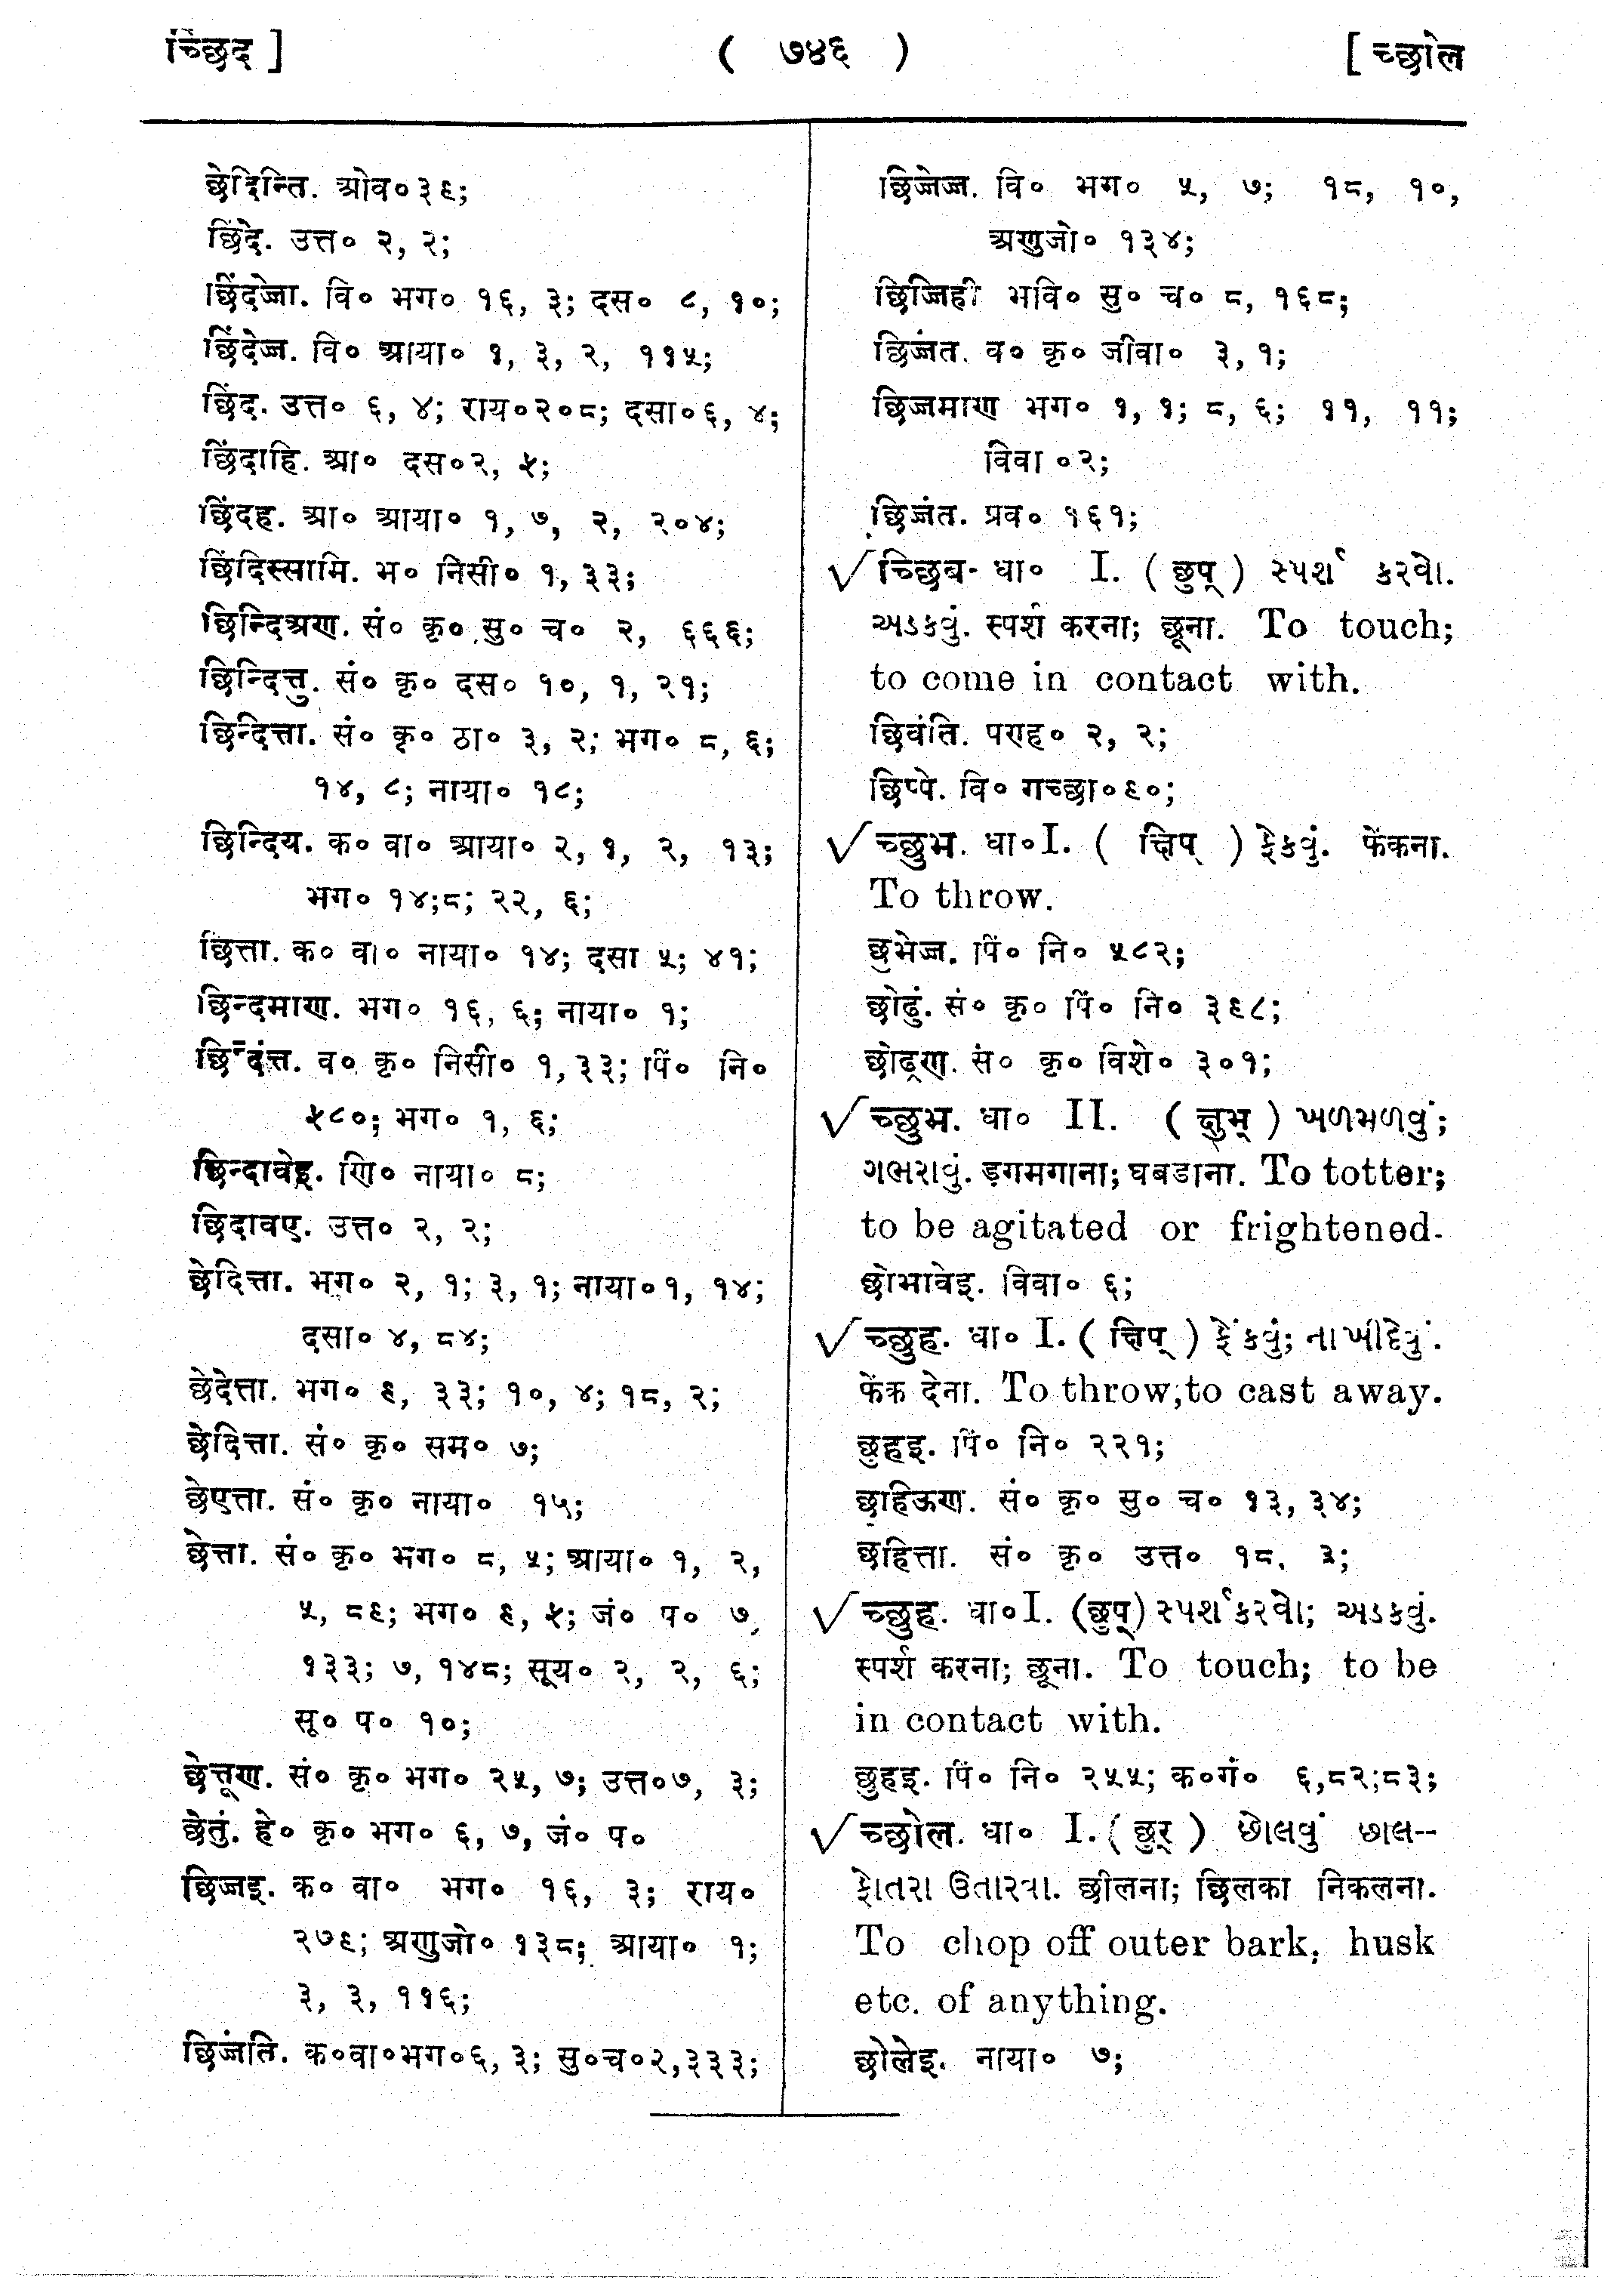 च्छिंद ]
( ७४६ )
[ च्छोल
छेदिन्ति. ओव०३९;
छिंदे. उत्त० २, २;
छिंदेज्जा. वि० भग० १६, ३; दस० ८, १०;
छिंदेज्ज. वि० आया० १, ३, २, ११५;
छिंद. उत्त० ६, ४; राय०२०८; दसा०६, ४;
छिंदाहि. आ० दस०२, ५;
छिंदह. आ० आया० १, ७, २, २०४;
छिंदिस्सामि. भ० निसी० १, ३३;
छिन्दिअण. सं० कृ० सु० च० २, ६६६;
छिन्दित्तु. सं० कृ० दस० १०, १, २१;
छिन्दित्ता. सं० कृ० ठा० ३, २; भग० ८, ६;
१४, ८; नाया० १८;
छिन्दिय. क० वा० आया० २, १, २, १३;
भग० १४;८; २२, ६;
छित्ता. क० वा० नाया० १४; दसा ५; ४१;
छिन्दमाण. भग० १६, ६; नाया० १;
छिन्दंत्त. व० कृ० निसी० १, ३३; पिं० नि०
५८०; भग० १, ६;
छिन्दावेइ. णि० नाया० ८;
छिदावए. उत्त० २, २;
छेदित्ता. भग० २, १; ३, १; नाया०१, १४;
दसा० ४, ८४;
छेदेत्ता. भग० ९, ३३; १०, ४; १८, २;
छेदित्ता. सं० कृ० सम० ७;
छेएत्ता. सं० कृ० नाया० १५;
छेत्ता. सं० कृ० भग० ८, ५; आया० १, २,
५, ८९; भग० ९, ५; जं० प० ७,
१३३; ७, १४८; सूय० २, २, ६;
सू० प० १०;
छेत्तूण. सं० कृ० भग० २५, ७; उत्त०७, ३;
छेतुं. हे० कृ० भग० ६, ७, जं० प०
छिज्जइ. क० वा० भग० १६, ३; राय०
२७९; अणुजो० १३८; आया० १;
३, ३, ११६;
छिज्जंति. क०वा०भग०६, ३; सु०च०२,३३३;
छिज्जेज्ज. वि० भग० ५, ७; १८, १०,
अणुजो० १३४;
छिज्जिही भवि० सु० च० ८, १६८;
छिज्जंत. व० कृ० जीवा० ३, १;
छिज्जमाण भग० १, १; ८, ६; ११, ११;
विवा ०२;
छिज्जंत. प्रव० १६१;
√ च्छिव. धा० I. ( छुप् ) સ્પર્શ કરવો.
અડકવું. स्पर्श करना; छूना. To touch;
to come in contact with.
छिवंति. पण्ह० २, २;
छिप्पे. वि० गच्छा०९०;
√ च्छुभ. धा०I. ( क्षिप् ) ફેંકવું. फेंकना.
To throw.
छुभेज्ज. पिं० नि० ५८२;
छोढुं. सं० कृ० पिं० नि० ३९८;
छोढूण. सं० कृ० विशे० ३०१;
√ च्छुभ. धा० II. ( क्षुभ् ) ખળમળવું;
ગભરાવું. ड़गमगाना; घबडाना. To totter;
to be agitated or frightened.
छोभावेइ. विवा० ६;
√ च्छुह. धा० I. ( क्षिप् ) ફેંકવું; નાખીદેવું.
फेंक देना. To throw;to cast away.
छुहइ. पिं० नि० २२१;
छाहिऊण. सं० कृ० सु० च० १३, ३४;
छहित्ता. सं० कृ० उत्त० १८, ३;
√ च्छुह. धा०I. (छुप्) સ્પર્શકરવો; અડકવું.
स्पर्श करना; छूना. To touch; to be
in contact with.
छुहइ. पिं० नि० २५५; क०गं० ६,८२;८३;
√ च्छोल. धा० I. ( छुर् ) છોલવું છાલ--
ફોતરા ઉતારવા. छीलना; छिलका निकलना.
To chop off outer bark, husk
etc. of anything.
छोलेइ. नाया० ७;